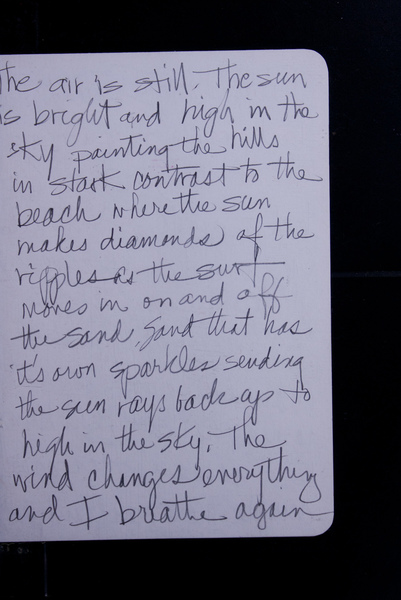 The air is still. The sun
is bright and high in the
sky painting the hills
in stark contrast to the
beach where the sun
makes diamonds of the
ripples as the surf
moves in on and off
the sand, sand that has
it's own sparkles sending
the sun rays back up to
high in the sky. The
wind changes everything
and I breathe again